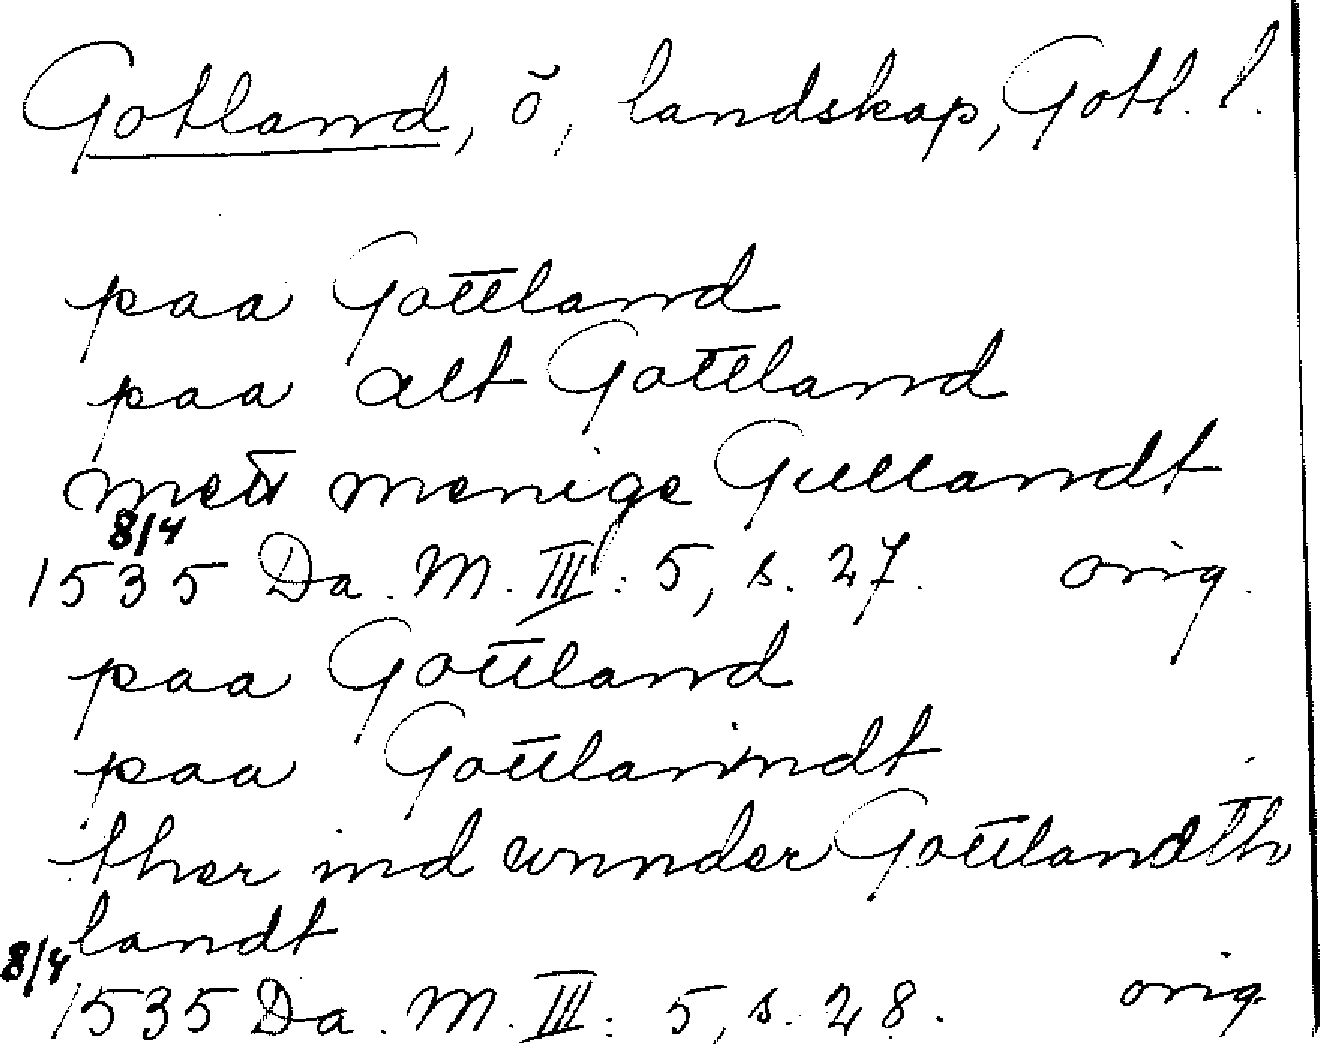 Gotland, ö, landskap, Gotl. l.
paa Gottland
paa alt Gottland
mett menige Gullandt
8/4
1535 Da. M. III: 5, s. 27. orig.
paa Gottland
paa Gottlanindt
ther ind wnnder Gottlandth
landt
8/4
1535 Da. M. III: 5, s. 28. orig